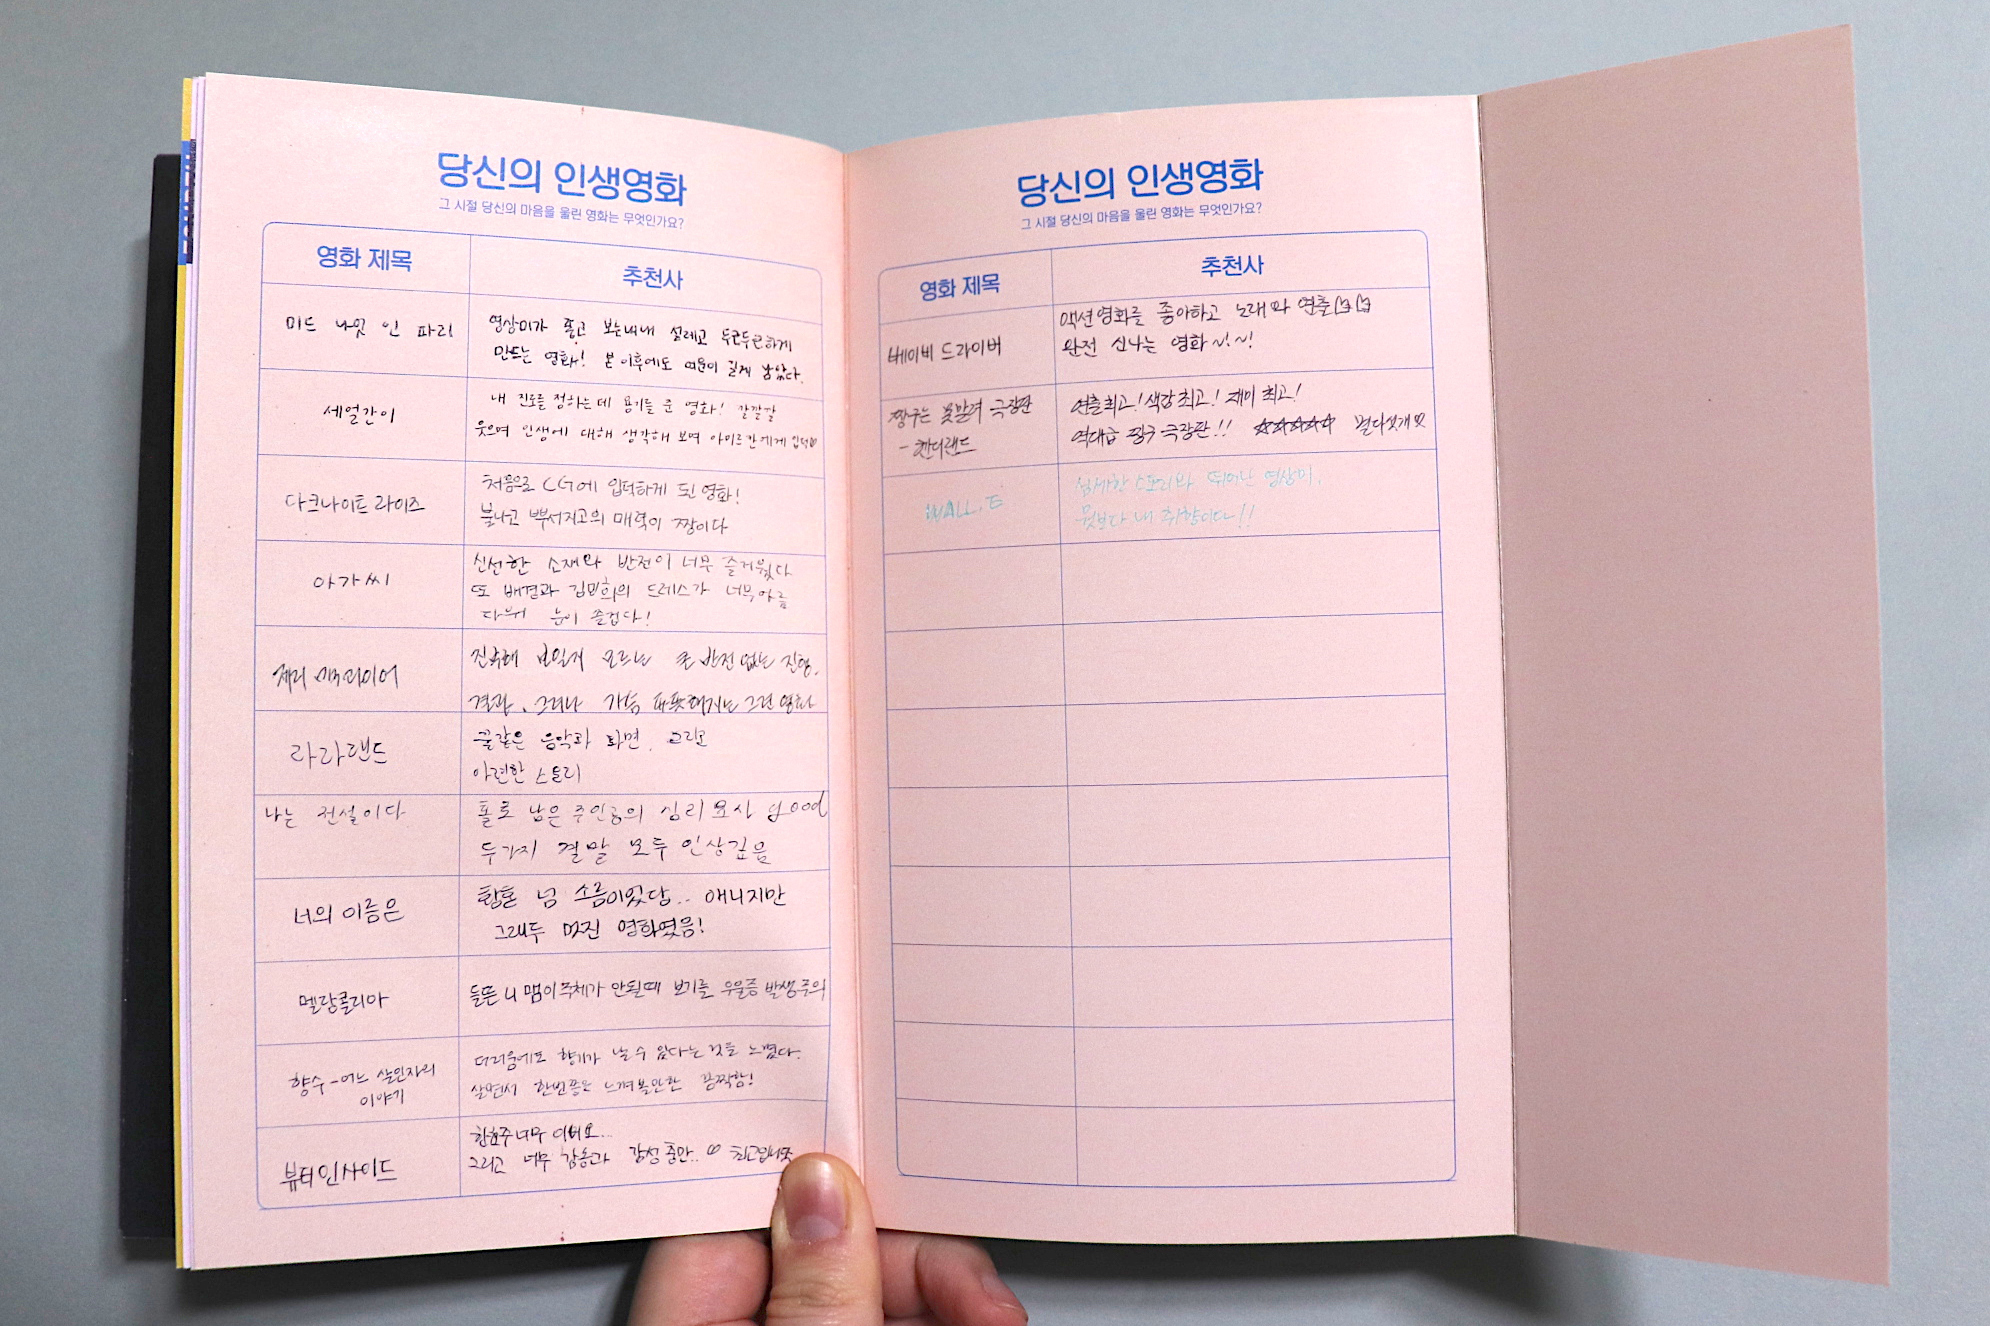 당신의 인생영화
그 시절 당신의 마음을 울린 영화는 무엇인가요?
영화 제목
추천사
미드 나잇 인 파리
영상미가 좋고 보는내내 설레고 두근두근하게
만드는 영화! 본 이후에도 여운이 길게 남았다.
세얼간이
내 진로를 정하는데 용기를 준 영화! 깔깔깔
웃으며 인생에 대해 생각해 보며 아미르칸에게 입덕♡
다크나이트 라이즈
처음으로 CG에 입덕하게 된 영화!
불나고 뿌서지고의 매력이 짱이다
아가씨
신선한 소재와 반전이 너무 즐거웠다
또 배경과 김민희의 드레스가 너무아름
다워 눈이 즐겁다!
제리 맥과이어
진부해 보일지 모르는 큰 반전 없는 진행,
결과. 그러나 가슴 따뜻해지는 그런 영화
라라랜드
꿈같은 음악과 화면. 그리고
아련한 스토리
나는 전설이다
홀로 남은 주인공의 심리 묘사 good
두가지 결말 모두 인상깊음
너의 이름은
황혼 넘 소름이었당.. 애니지만
그래두 멋진 영화였음!
멜랑콜리아
들뜬 니 맴이 주체가 안될때 보기를 우울증 발생주의
향수 - 어느 살인자의
이야기
더러움에도 향기가 날 수 있다는 것을 느꼈다.
살면서 한번쯤은 느껴볼만한 끔찍함!
뷰티인사이드
한효주너무 이뻐요...
그리고 너무 감동과 감성 충만..♡
당신의 인생영화
그 시절 당신의 마음을 울린 영화는 무엇인가요?
영화 제목
추천사
베이비 드라이버
액션영화를 좋아하고 노래와 연출
완전 신나는 영화~!~!
짱구는 못말려 극장판
- 핸더랜드
연출최고! 색감최고! 재미 최고!
역대급 짱구 극장판!! ☆☆☆☆☆ 별다섯개
WALL.E
섬세한 스토리와 뛰어난 영상미.
뭣보다 내 취향이다!!